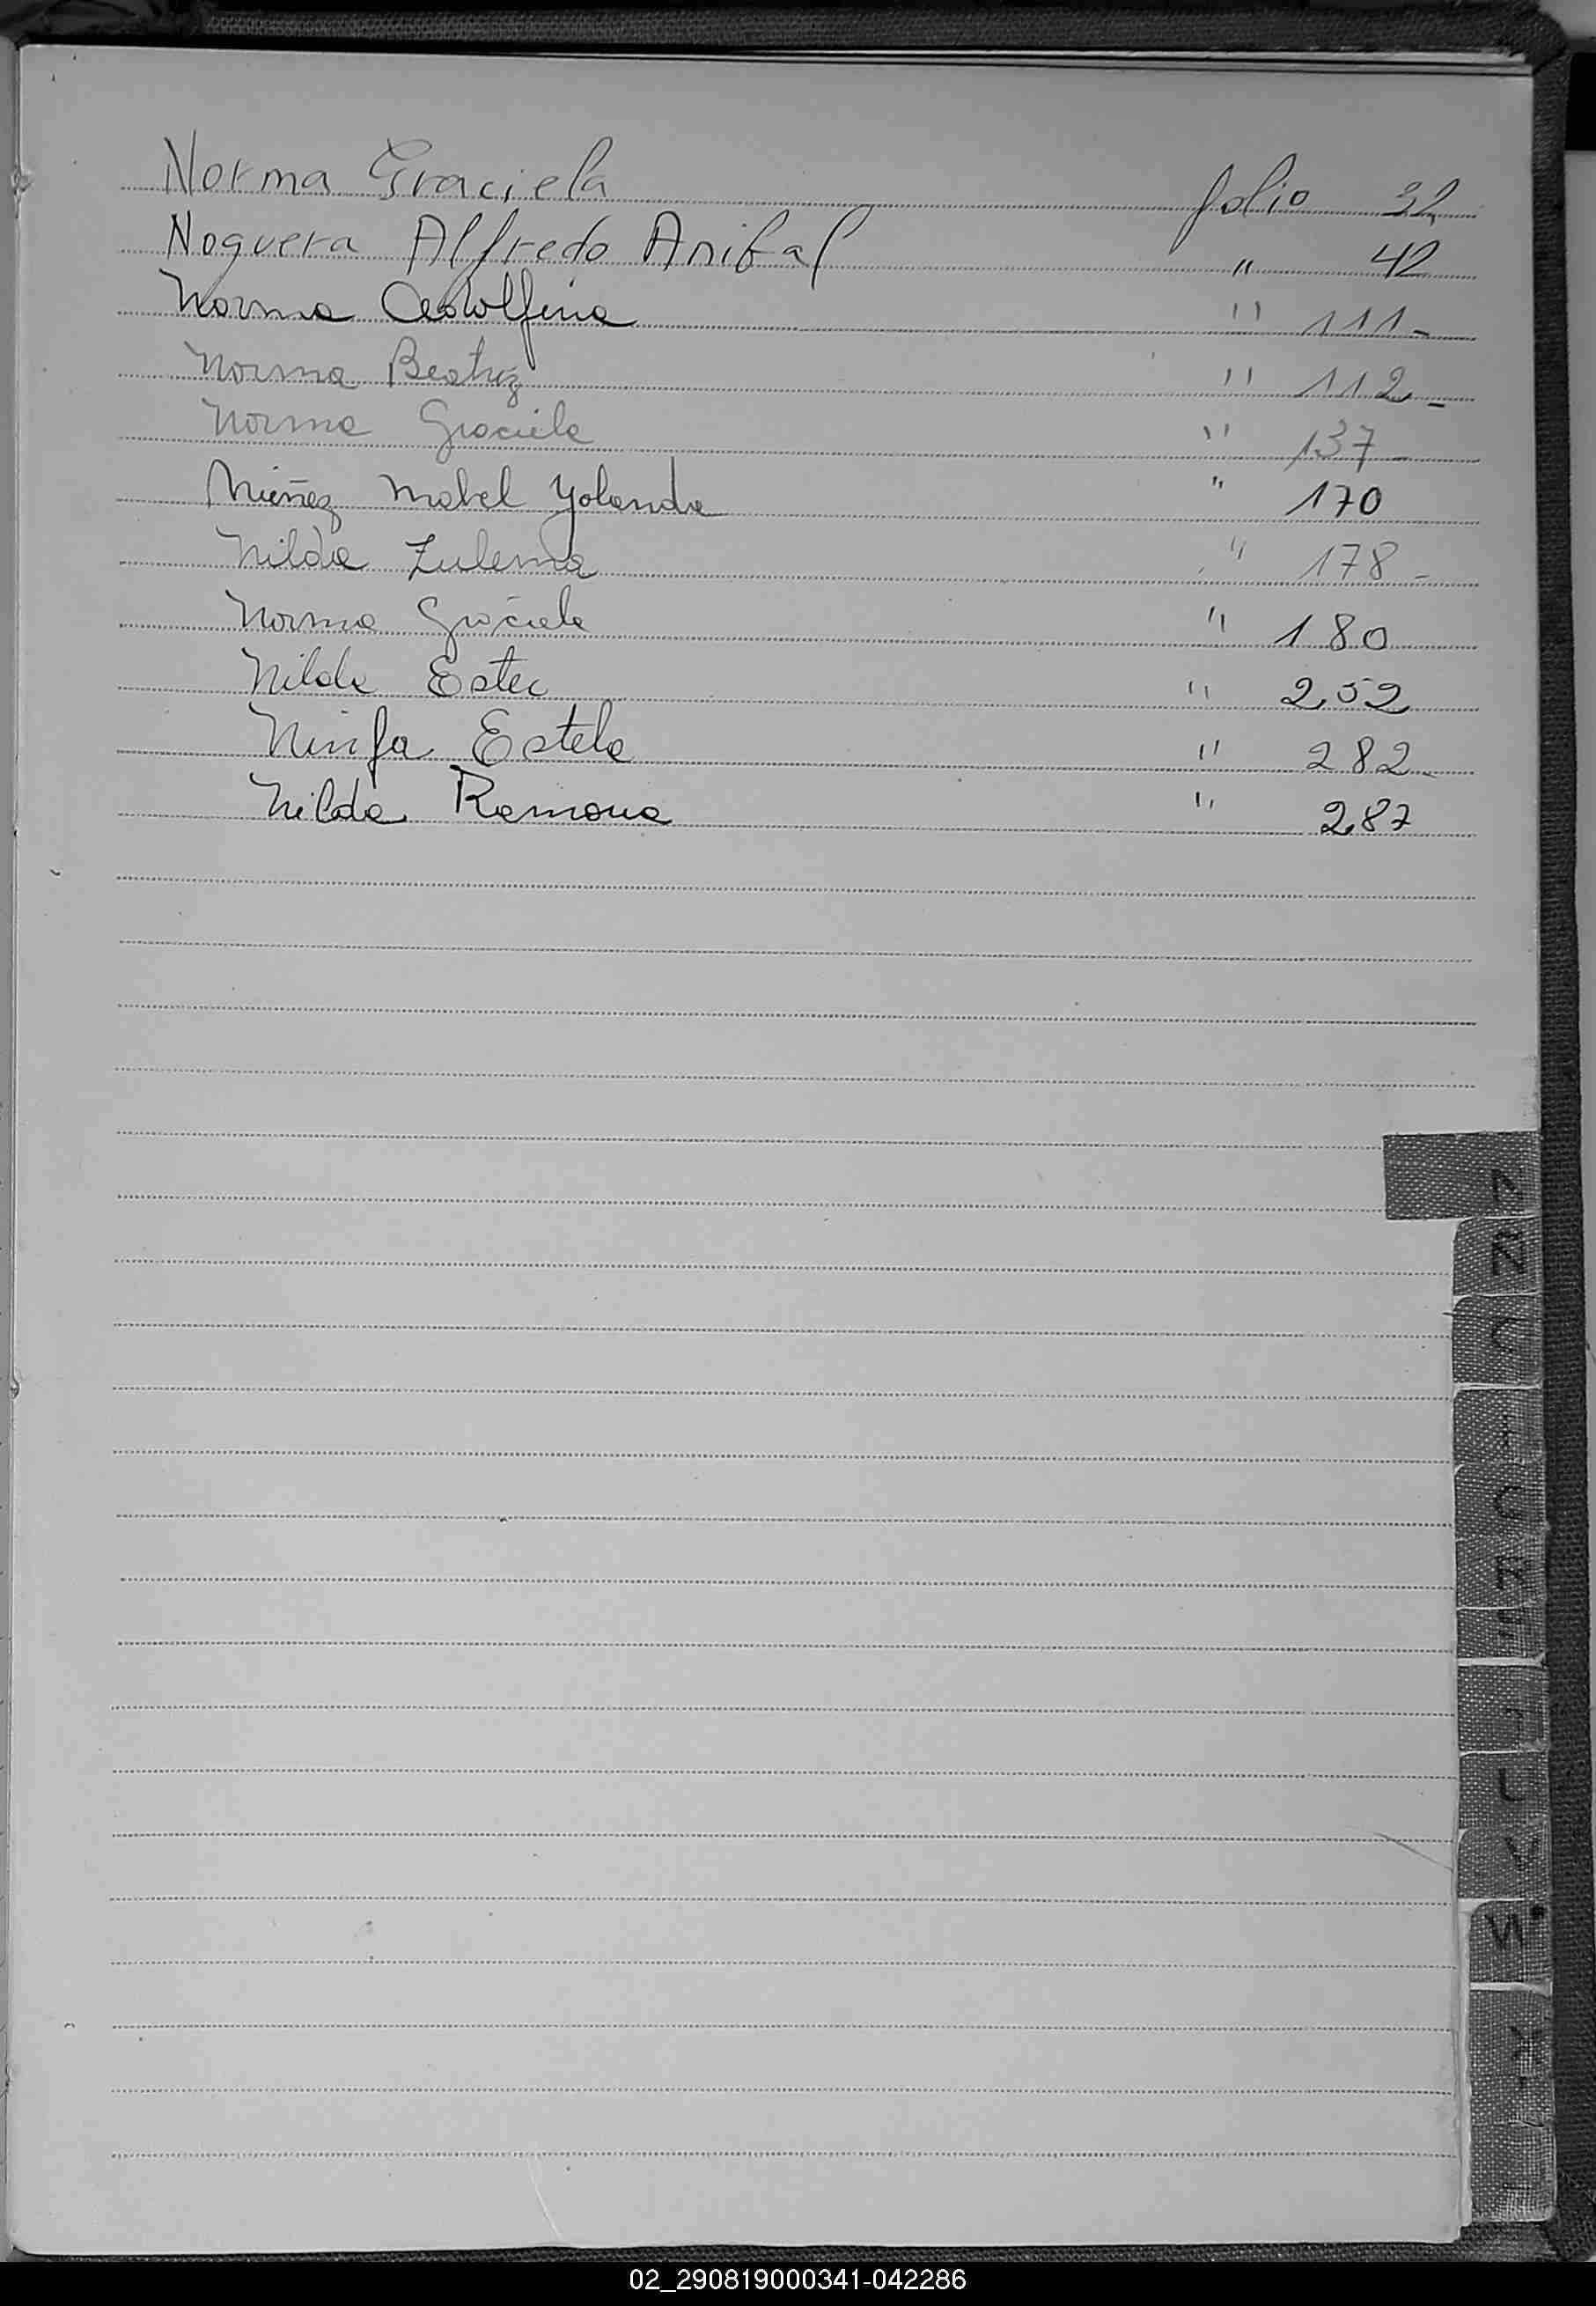 Norma Graciela folio 32
Noguera Alfredo Anibal " 42
Norma Adolfina " 111-
Norma Beatriz " 112-
Norma Graciela " 137-
Núñez Mabel Yolanda " 170
Nilda Zulema " 178-
Norma Graciela " 180
Nilda Ester " 252
Ninfa Estela " 282-
Nilda Ramona " 287
N
02_290819000341-042286